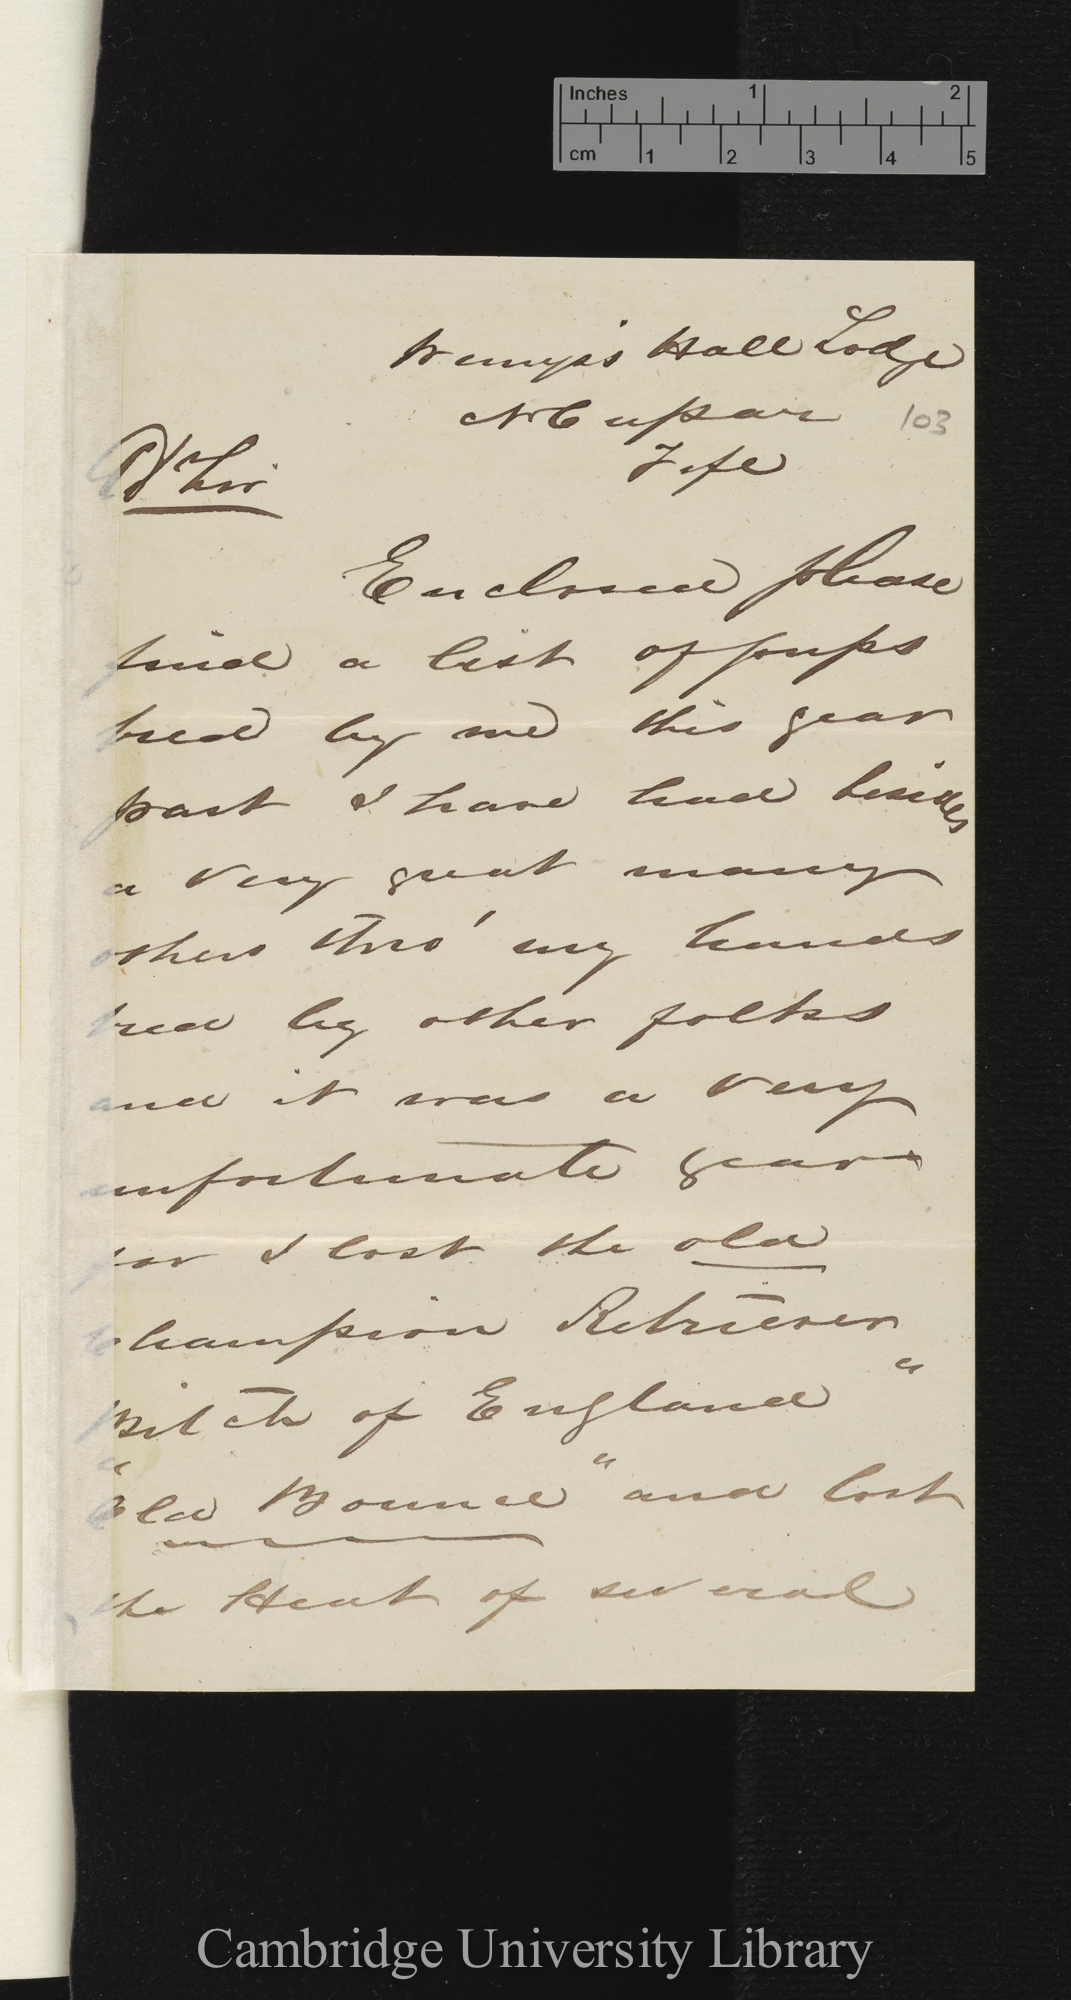 Inches 1 2
cm 1 2 3 4 5
Wemyss Hall Lodge
N Cupar 103
Fife
Dr Sir
Enclosed please
find a list of pups
bred by me this year
past I have had besides
a very great many
others thro' my hands
bred by other folks
and it was a very
unfortunate year
for I lost the old
Champion Retriever
Bitch of England "
"Old Bounce" and lost
the Heat of several
Cambridge University Library